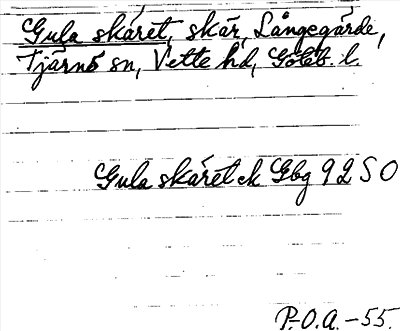 Gula skäret, skär, Långegärde,
Tjärnö sn, Vette hd, Göteb. l.
Gula skäret ek Gbg 9 2 S O
P.O.A. -55.